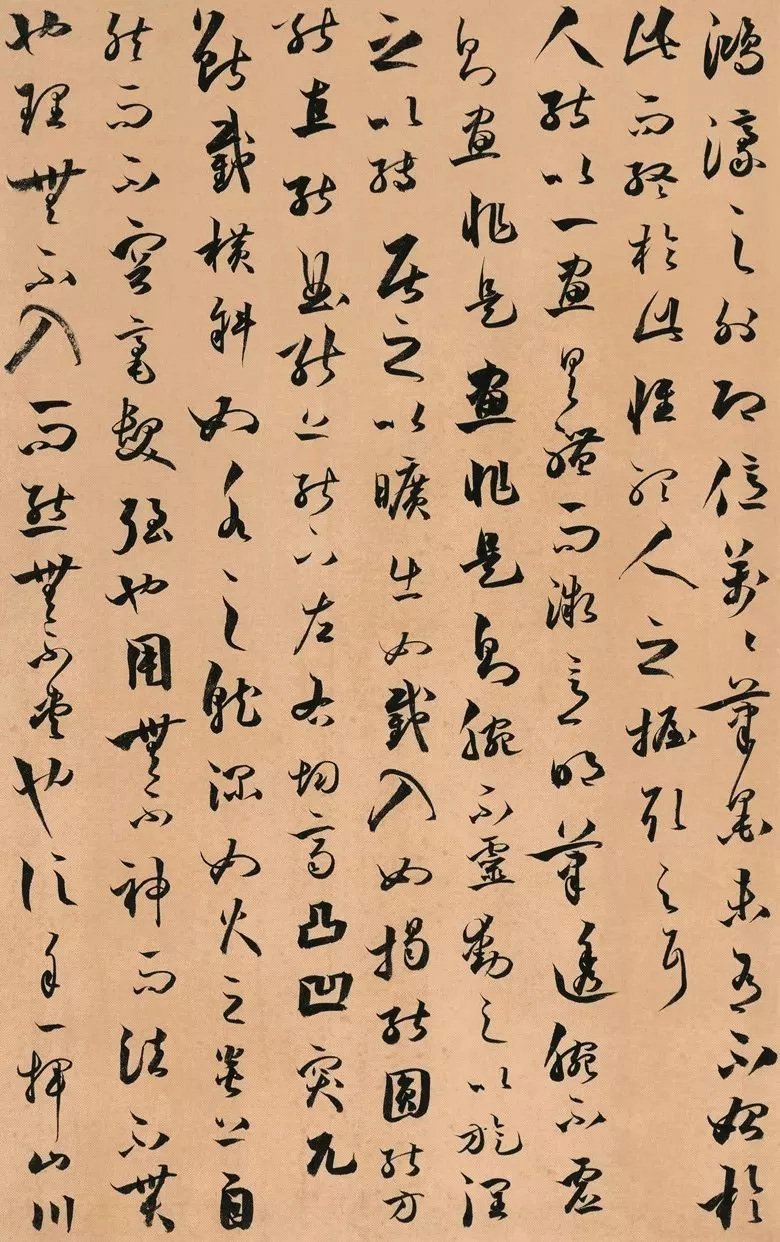 鴻濛之外即億萬〻筆墨未有不始於
此而終於此惟聽人之握取之耳
人能以一畫具體而微意明筆透腕不虛
則畫非是畫非是則腕不靈動之以旋潤
之以轉居之以曠出如截入如揭能圓能方
能直能曲能上能下左右均齊凸凹突兀
斷截橫斜如水之就深如火之炎上自
然而不容毫髮強也用無不神而法不貫
也理無不入而態無不盡也信手一揮山川